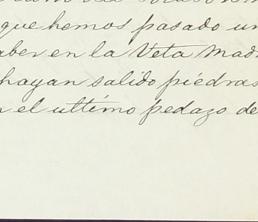 que hemos pasado un
aber en la Veta Mad
hayan salido piedras
el ultimo pedazo de